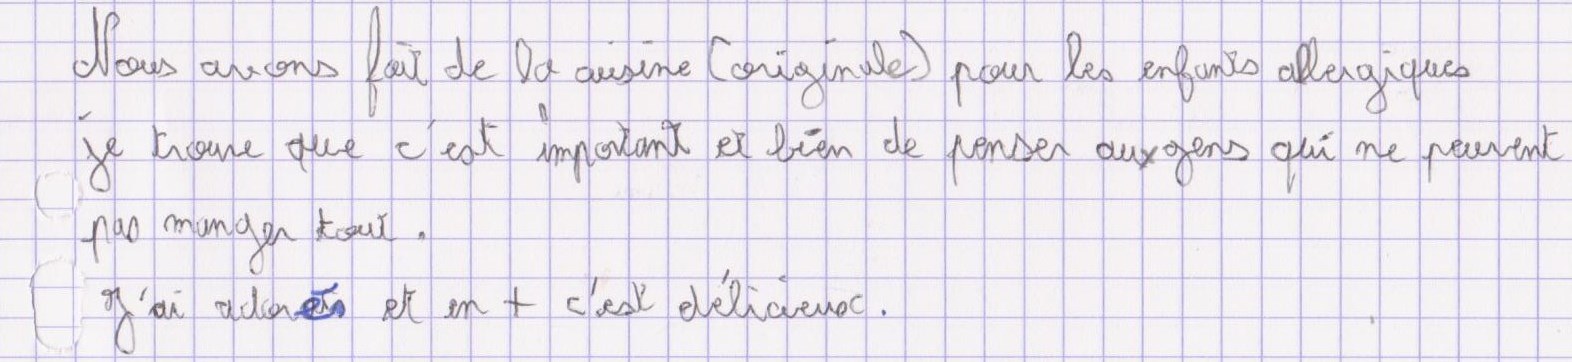 Nous avons fait de la cuisine (originale) pour les enfants allergiques
je trouve que c'est important et bien de penser aux gens qui ne peuvent
pas manger tout.
J'ai adorés et en + c'est délicieux.